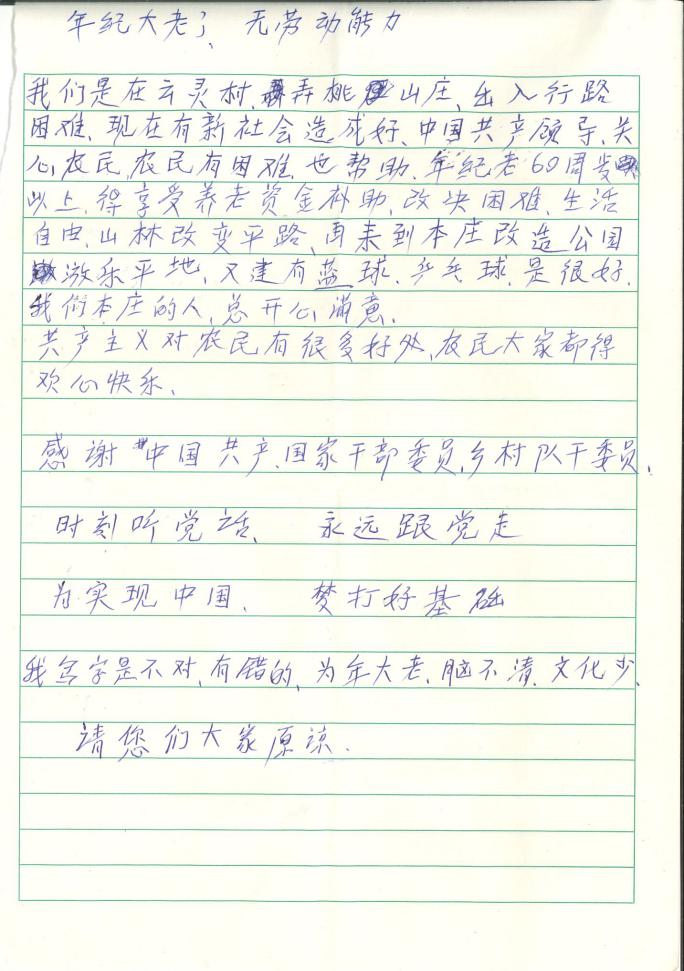 年纪大老了、无劳动能力
我们是在云灵村、弄桃山庄、出入行路
困难、现在有新社会造成好、中国共产领导、关
心农民、农民有困难、也帮助、年纪老60周岁
以上、得享受养老资金补助、改决困难、生活
自由、山林改变平路、再来到本庄改造公园
激乐平地、又建有蓝球、乒乓球、是很好、
我们本庄的人、总开心满意、
共产主义对农民有很多好处、农民大家都得
欢心快乐、
感谢中国共产、国家干部委员、乡村队干委员、
时刻听党话、永远跟党走
为实现中国、梦打好基础
我写字是不对、有错的、为年大老、脑不清、文化少、
请您们大家原谅、